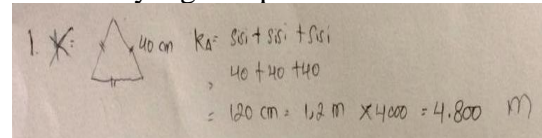 1. K = 40 cm K△ = Sisi + sisi + sisi
= 40 + 40 + 40
= 120 cm = 1,2 m × 4000 = 4.800 m